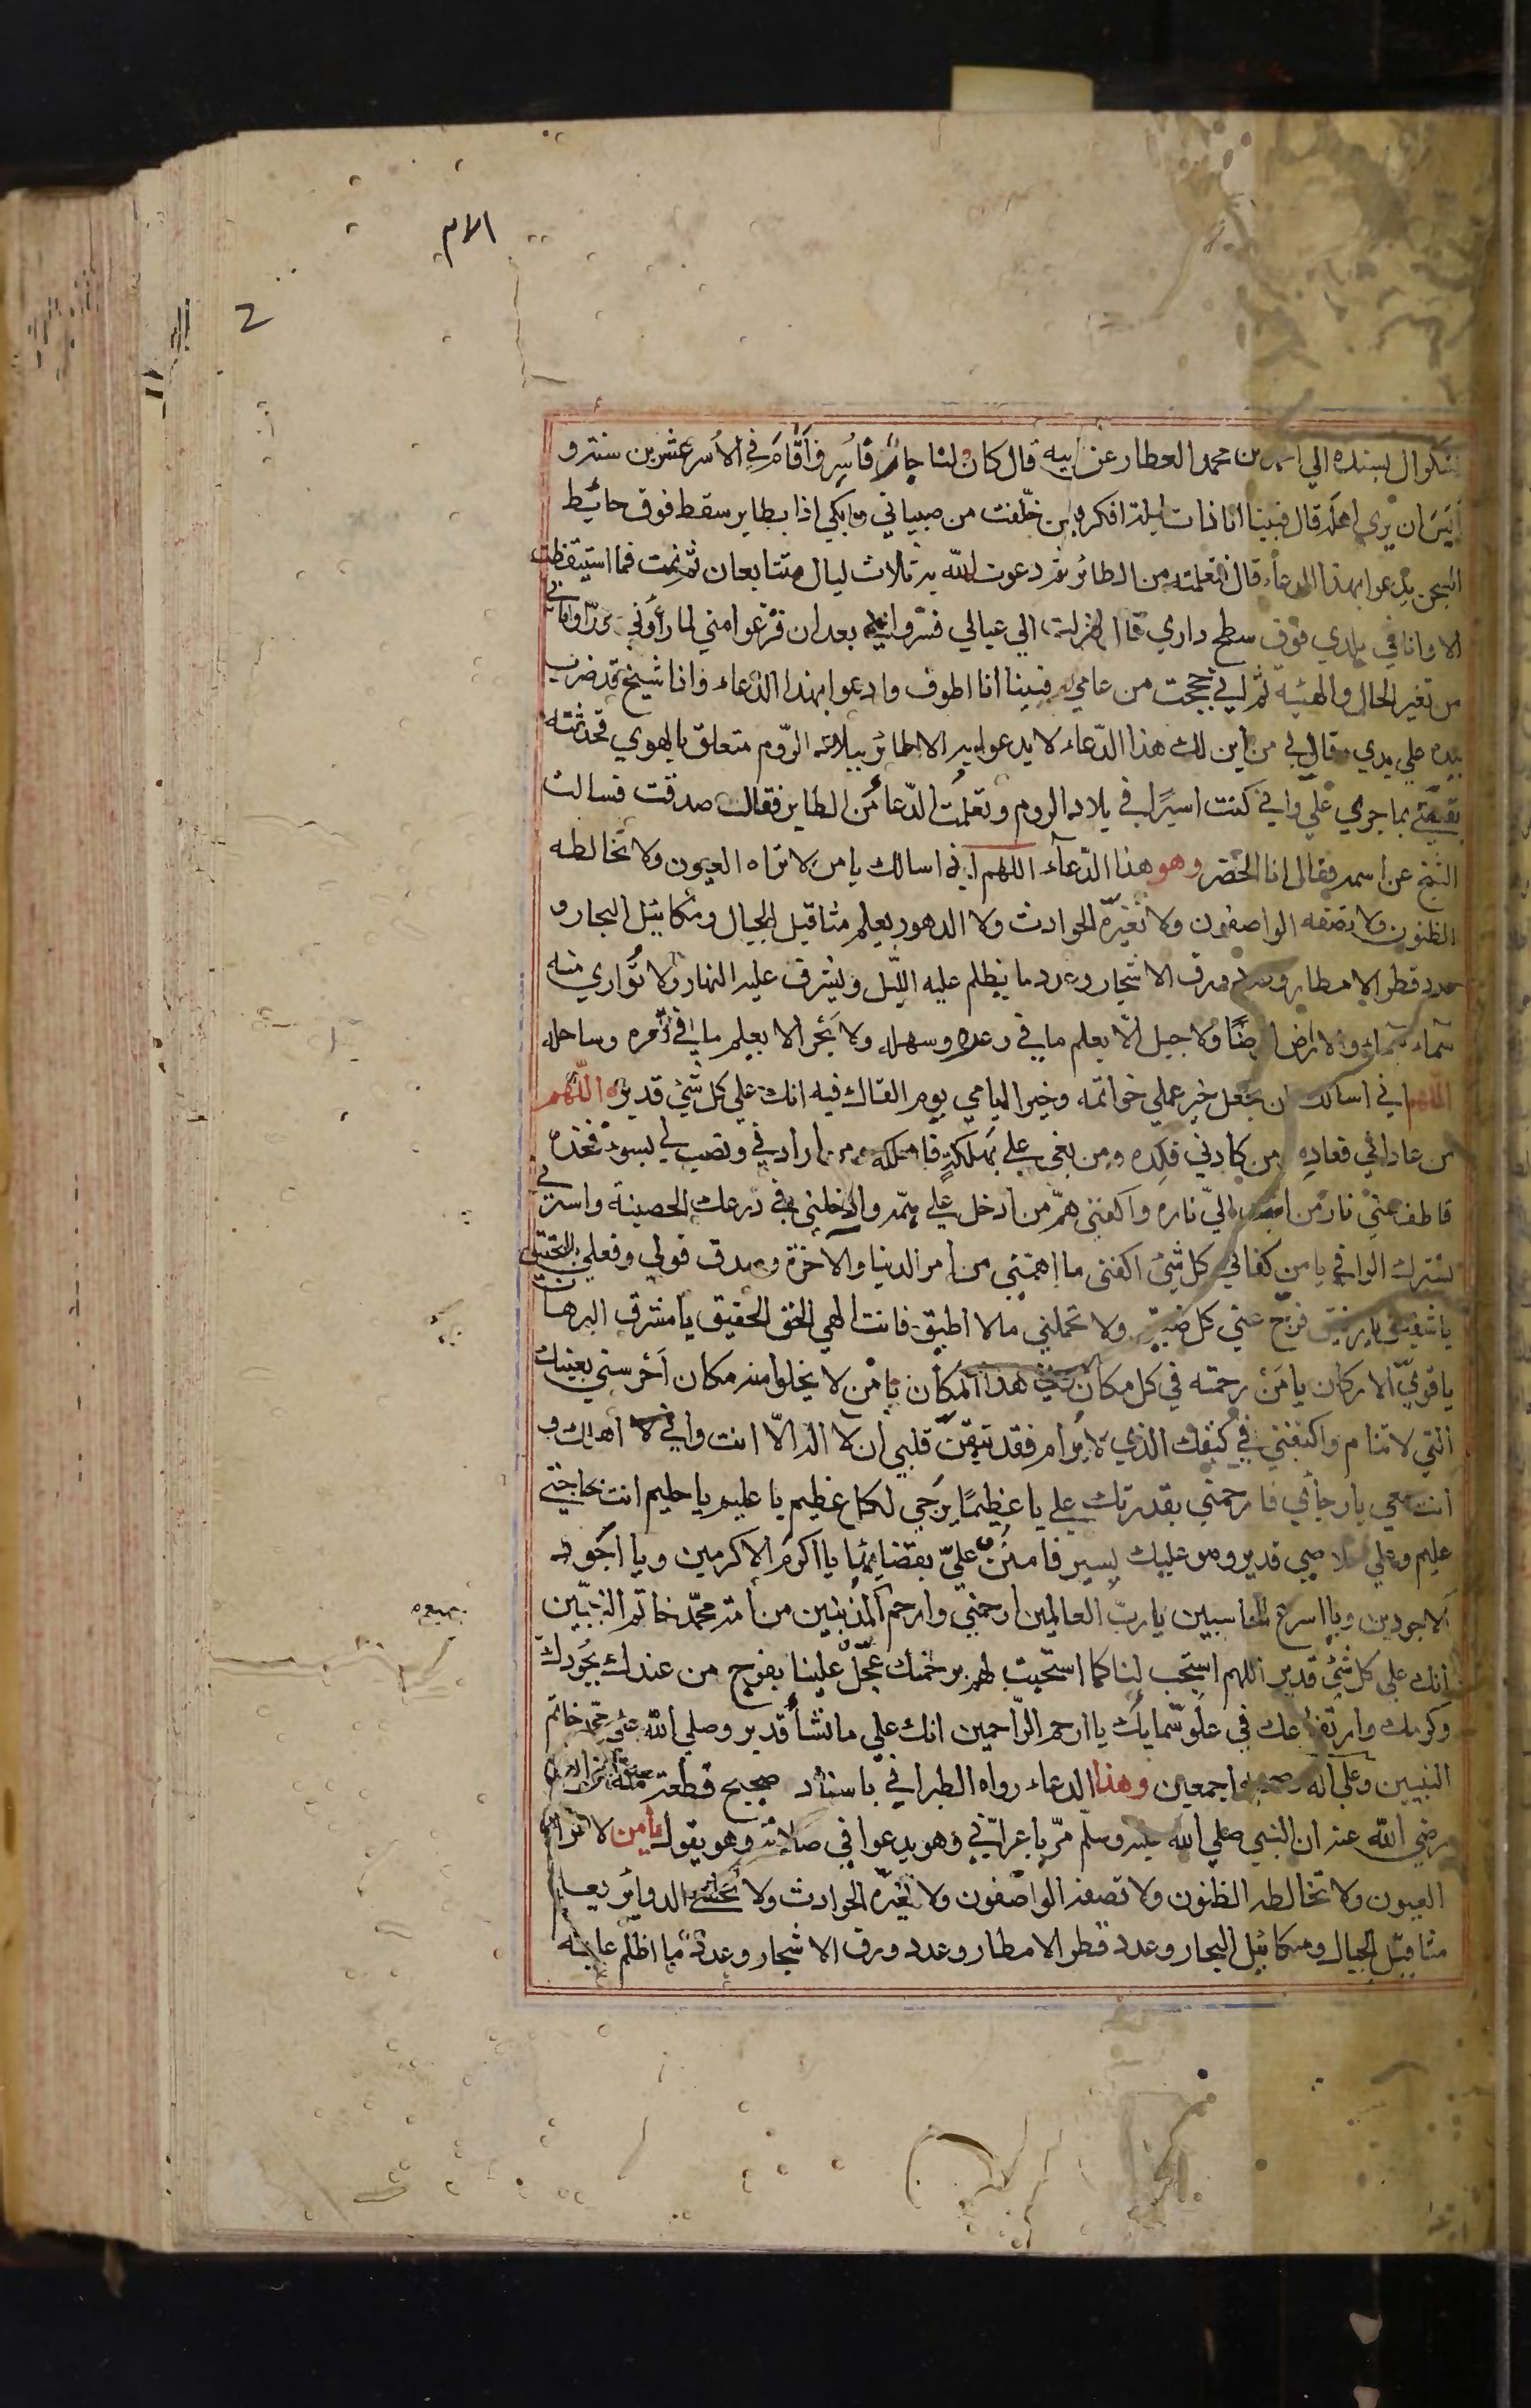 الام
بشكوال بسنده الي احمد بن محمد العطار عن ابيه قال كان لنا جار فأسر فأقام في الأسر عشرين سنة و
أيس ان يري اهله قال فبينا انا ذات ليلة افكر فيمن خلّفت من صبياني وابكي اذا بطاير سقط فوق حائيط
السجن يدعوا بهذا الدعاء قال فتعلمته من الطائر ثم دعوت الله به ثلاث ليال متتابعان ثم نمت فما استيقظت
الا وانا في بلدي فوق سطح داري قال فنزلت الي عيالي فسرّوا بي بعدان فزعوا مني لما رأوني ورأوا ما بي
من تغير الحال والهيئه ثم اني حججت من عامي فبينا انا اطوف وادعوا بهذا الدعاء واذا شيخ قد ضرب
بيده علي يدي وقال لي من أين لك هذا الدّعاء لا يدعوا به الا طائر ببلاد الرّوم متعلق بالهوي فحدثته
بقصّتي بما جري علي واني كنت اسيرًا في بلاد الروم وتعلمت الدّعاء من الطاير فقال صدقت فسالت
الشيخ عن اسمه فقال انا الخضر وهو هذا الدّعاء اللهم اني اسالك يا من لا تراه العيون ولا تخالطه
الظنون ولا تصفه الواصفون ولا تغيرّه الحوادث ولا الدهور يعلم مثاقيل الجبال ومكائيل البحار و
عدد قطر الامطار وعدد ورق الاشجار وعدد ما يظلم عليه اللّيل ويشرق عليه النهار ولا تُواري منه
سماء سماء ولا ارض ارضًا ولا جبل الّا يعلم ما في وعره وسهله ولا بحر الا يعلم ما في قعره وساحله
اللّهم اني اسالك ان تجعل خير عملي خواتمه وخير ايامي يوم القاك فيه انك علي كل شيء قدير اللّهم
من عاداني فعاده ومن كادني فكِده ومن بغي علي بهلكة فاهلكه ومن ارادني ونصب لي بسوء فخذه
واطف عني نار من اشب اليّ ناره واكفني همّ من ادخل علي همّه وادخلني في درعك الحصينة واسترني
بسترك الواقي يا من كفاني كل شيء اكفني ما اهمّني من امر الدنيا والآخرة وصدق قولي وفعلي بالتحقيق
يا شفيق يا رفيق فرّج عني كل ضيق ولا تحملني ما لا اطيق فانت الهي الحق الحقيق يا مشرق البرهان
يا قويّ الاركان يا من رحمته في كل مكان وفي هذا المكان يا من لا يخلوا منه مكان أحرسني بعينك
التي لا تنام واكنفني في كنفك الذي لا يرام فقد تيقن قلبي ان لا اله الّا انت واني لا اهلك و
انت معي يا رجائي فارحمني بقدرتك علي يا عظيمًا يرجي لكل عظيم يا عليم يا حليم انت بحاجتي
عليم وعلي خلاصي قدير وهو عليك يسير فامنن عليّ بقضائها يا اكرم الاكرمين ويا اجود
الاجودين ويا اسرع الحاسبين يا ربّ العالمين ارحمني وارحم المذنبين من امة محمّد خاتم النبيّين
انك علي كل شيء قدير اللهم استجب لنا كما استجبت لهم برحمتك عجّل علينا بفرج من عندك بجُودك
وكرمك وارتفاعك في علوّ سمايك يا ارحم الرّاحمين انك علي ما تشاء قدير وصلي الله علي محمد خاتم
النبيين وعلي اله وصحبه اجمعين وهذا الدعاء رواه الطبراني باسناد صحيح قطعة منه
رضي الله عنه ان النبي صلي الله عليه وسلّم مرّ باعرابي وهو يدعوا في صلاته وهو يقول يا من لا تراه
العيون ولا تخالطه الظنون ولا تصفه الواصفون ولا تغيّره الحوادث ولا يخشي الدوائر يعلم
مثاقيل الجبال ومكائيل البحار وعدد قطر الامطار وعدد ورق الاشجار وعدد ما اظلم عليه